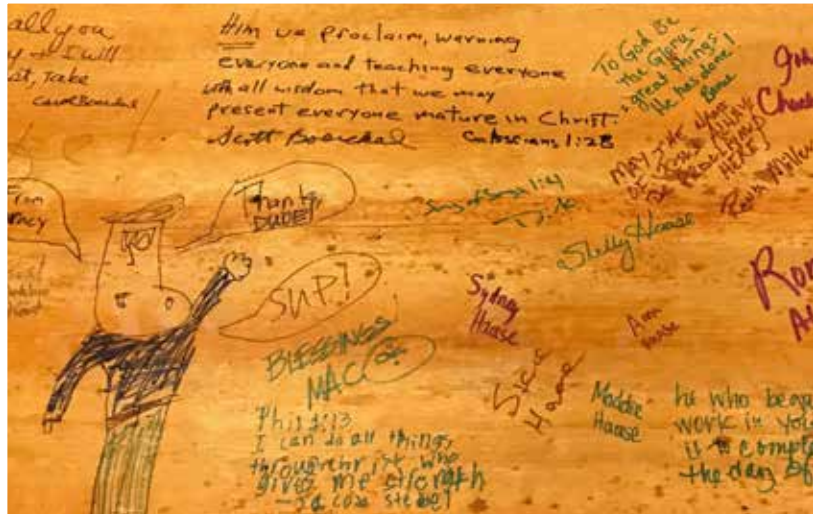 ally you
y & I will
at, Take
Carol
Him we proclaim, warning
everyone and teaching everyone
with all wisdom that we may
present everyone mature in Christ.
Scott Colossians 1:28
To God Be
the Glory-
great things
He has done!
Joh
Chuck
MAY THE NAME
OF JESUS ALWAYS
BE PROCLAIMED
HERE!
Miller
From
Thanks,
DUDE!
SUP?
Shelly Haase
Sydney
Haase
Ann
Haase
Haase
Maddie
Haase
Ron
BLESSINGS
MAC
Phil 4:13
I can do all things
through christ who
gives me strength
he who bega
work in you
it to comple
the day of